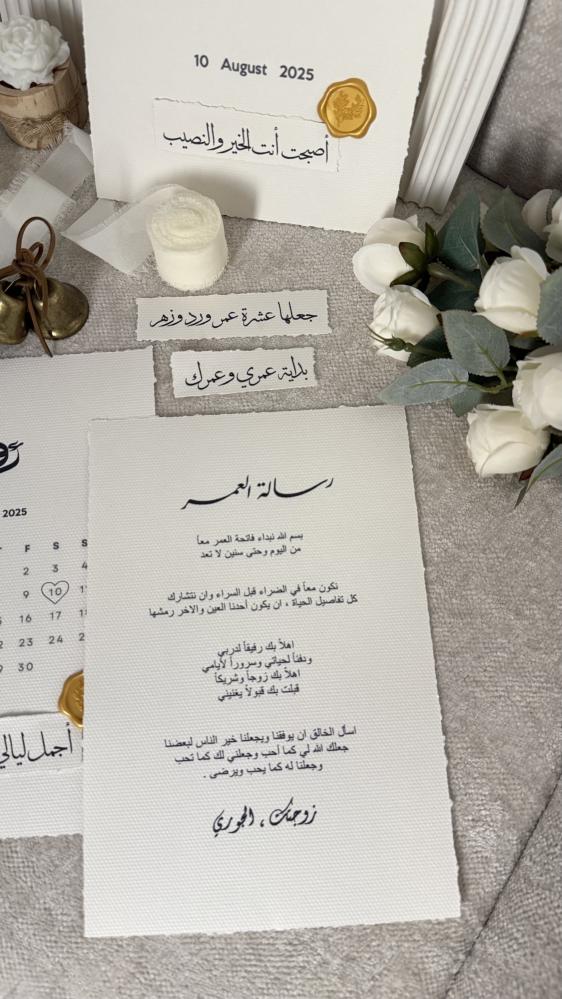 10 August 2025
أصبحت أنت الخير والنصيب
جعلها عشرة عمر ورد وزهر
بداية عمري وعمرك
رسالة العمر
بسم الله نبداء فاتحة العمر معاً
من اليوم وحتى سنين لا تعد
نكون معاً في الضراء قبل السراء وان نتشارك
كل تفاصيل الحياة ، ان يكون أحدنا العين والاخر رمشها
اهلاً بك رفيقاً لدربي
ودفئاً لحياتي وسروراً لأيامي
اهلاً بك زوجاً وشريكاً
قبلت بك قبولاً يغنيني
اسأل الخالق ان يوفقنا ويجعلنا خير الناس لبعضنا
جعلك الله لي كما أحب وجعلني لك كما تحب
وجعلنا له كما يحب ويرضى .
زوجتك ، الجوري
2025
F S S
2 3 4
9 10
16 17
23 24
30
أجمل ليالي